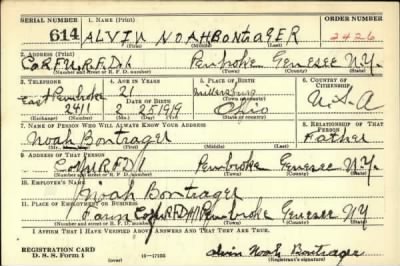 SERIAL NUMBER 1. NAME (Print) ORDER NUMBER
614 ALVIN NOAH BONTRAGER 2426
(First) (Middle) (Last)
2. ADDRESS (Print)
R.F.D. 1 Pembroke Genesee N.Y.
(Number and street or R. F. D. number) (Town) (County) (State)
3. TELEPHONE 4. AGE IN YEARS 5. PLACE OF BIRTH 6. COUNTRY OF CITIZENSHIP
East Pembroke 21 Millersburg
DATE OF BIRTH (Town or county)
2411 2 25 1919 Ohio U.S.A
(Exchange) (Number) (Mo.) (Day) (Yr.) (State or country)
7. NAME OF PERSON WHO WILL ALWAYS KNOW YOUR ADDRESS 8. RELATIONSHIP OF THAT PERSON
Noah Bontrager Father
(Mr., Mrs., Miss) (First) (Middle) (Last)
9. ADDRESS OF THAT PERSON
RFD 1 Pembroke Genesee N.Y.
(Number and street or R. F. D. number) (Town) (County) (State)
10. EMPLOYER'S NAME
Noah Bontrager
11. PLACE OF EMPLOYMENT OR BUSINESS
Farm R.F.D. #1 Pembroke Genesee NY
(Number and street or R. F. D. number) (Town) (County) (State)
I AFFIRM THAT I HAVE VERIFIED ABOVE ANSWERS AND THAT THEY ARE TRUE.
REGISTRATION CARD
D. S. S. Form 1 16-17105 Alvin Noah Bontrager
(Registrant's signature)